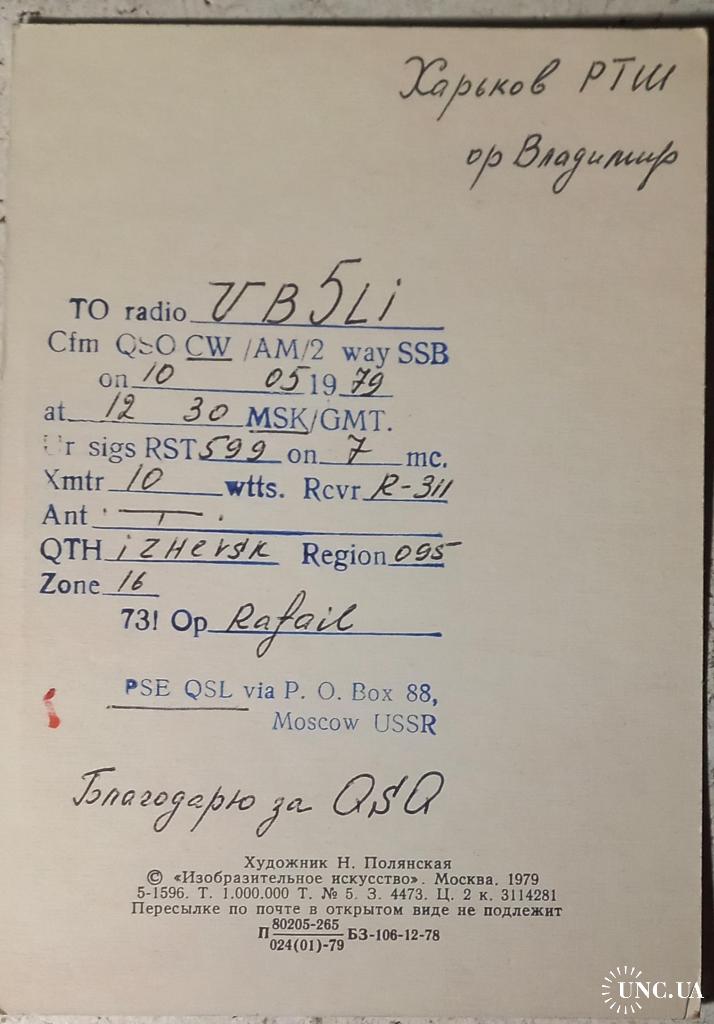 Харьков РТШ
ор Владимир
TO radio UB5Li
Cfm QSO CW /AM/2 way SSB
on 10 05 1979
at 12 30 MSK/GMT.
Ur sigs RST 599 on 7 mc.
Xmtr 10 wtts. Rcvr R-311
Ant
QTH iZHevsk Region 095
Zone 16
73! Op Rafail
PSE QSL via P. O. Box 88,
Moscow USSR
Благодарю за QSO
Художник Н. Полянская
© «Изобразительное искусство». Москва. 1979
5-1596. Т. 1.000.000 Т. № 5. З. 4473. Ц. 2 к. 3114281
Пересылке по почте в открытом виде не подлежит
П 80205-265
024(01)-79 БЗ-106-12-78
UNC.UA